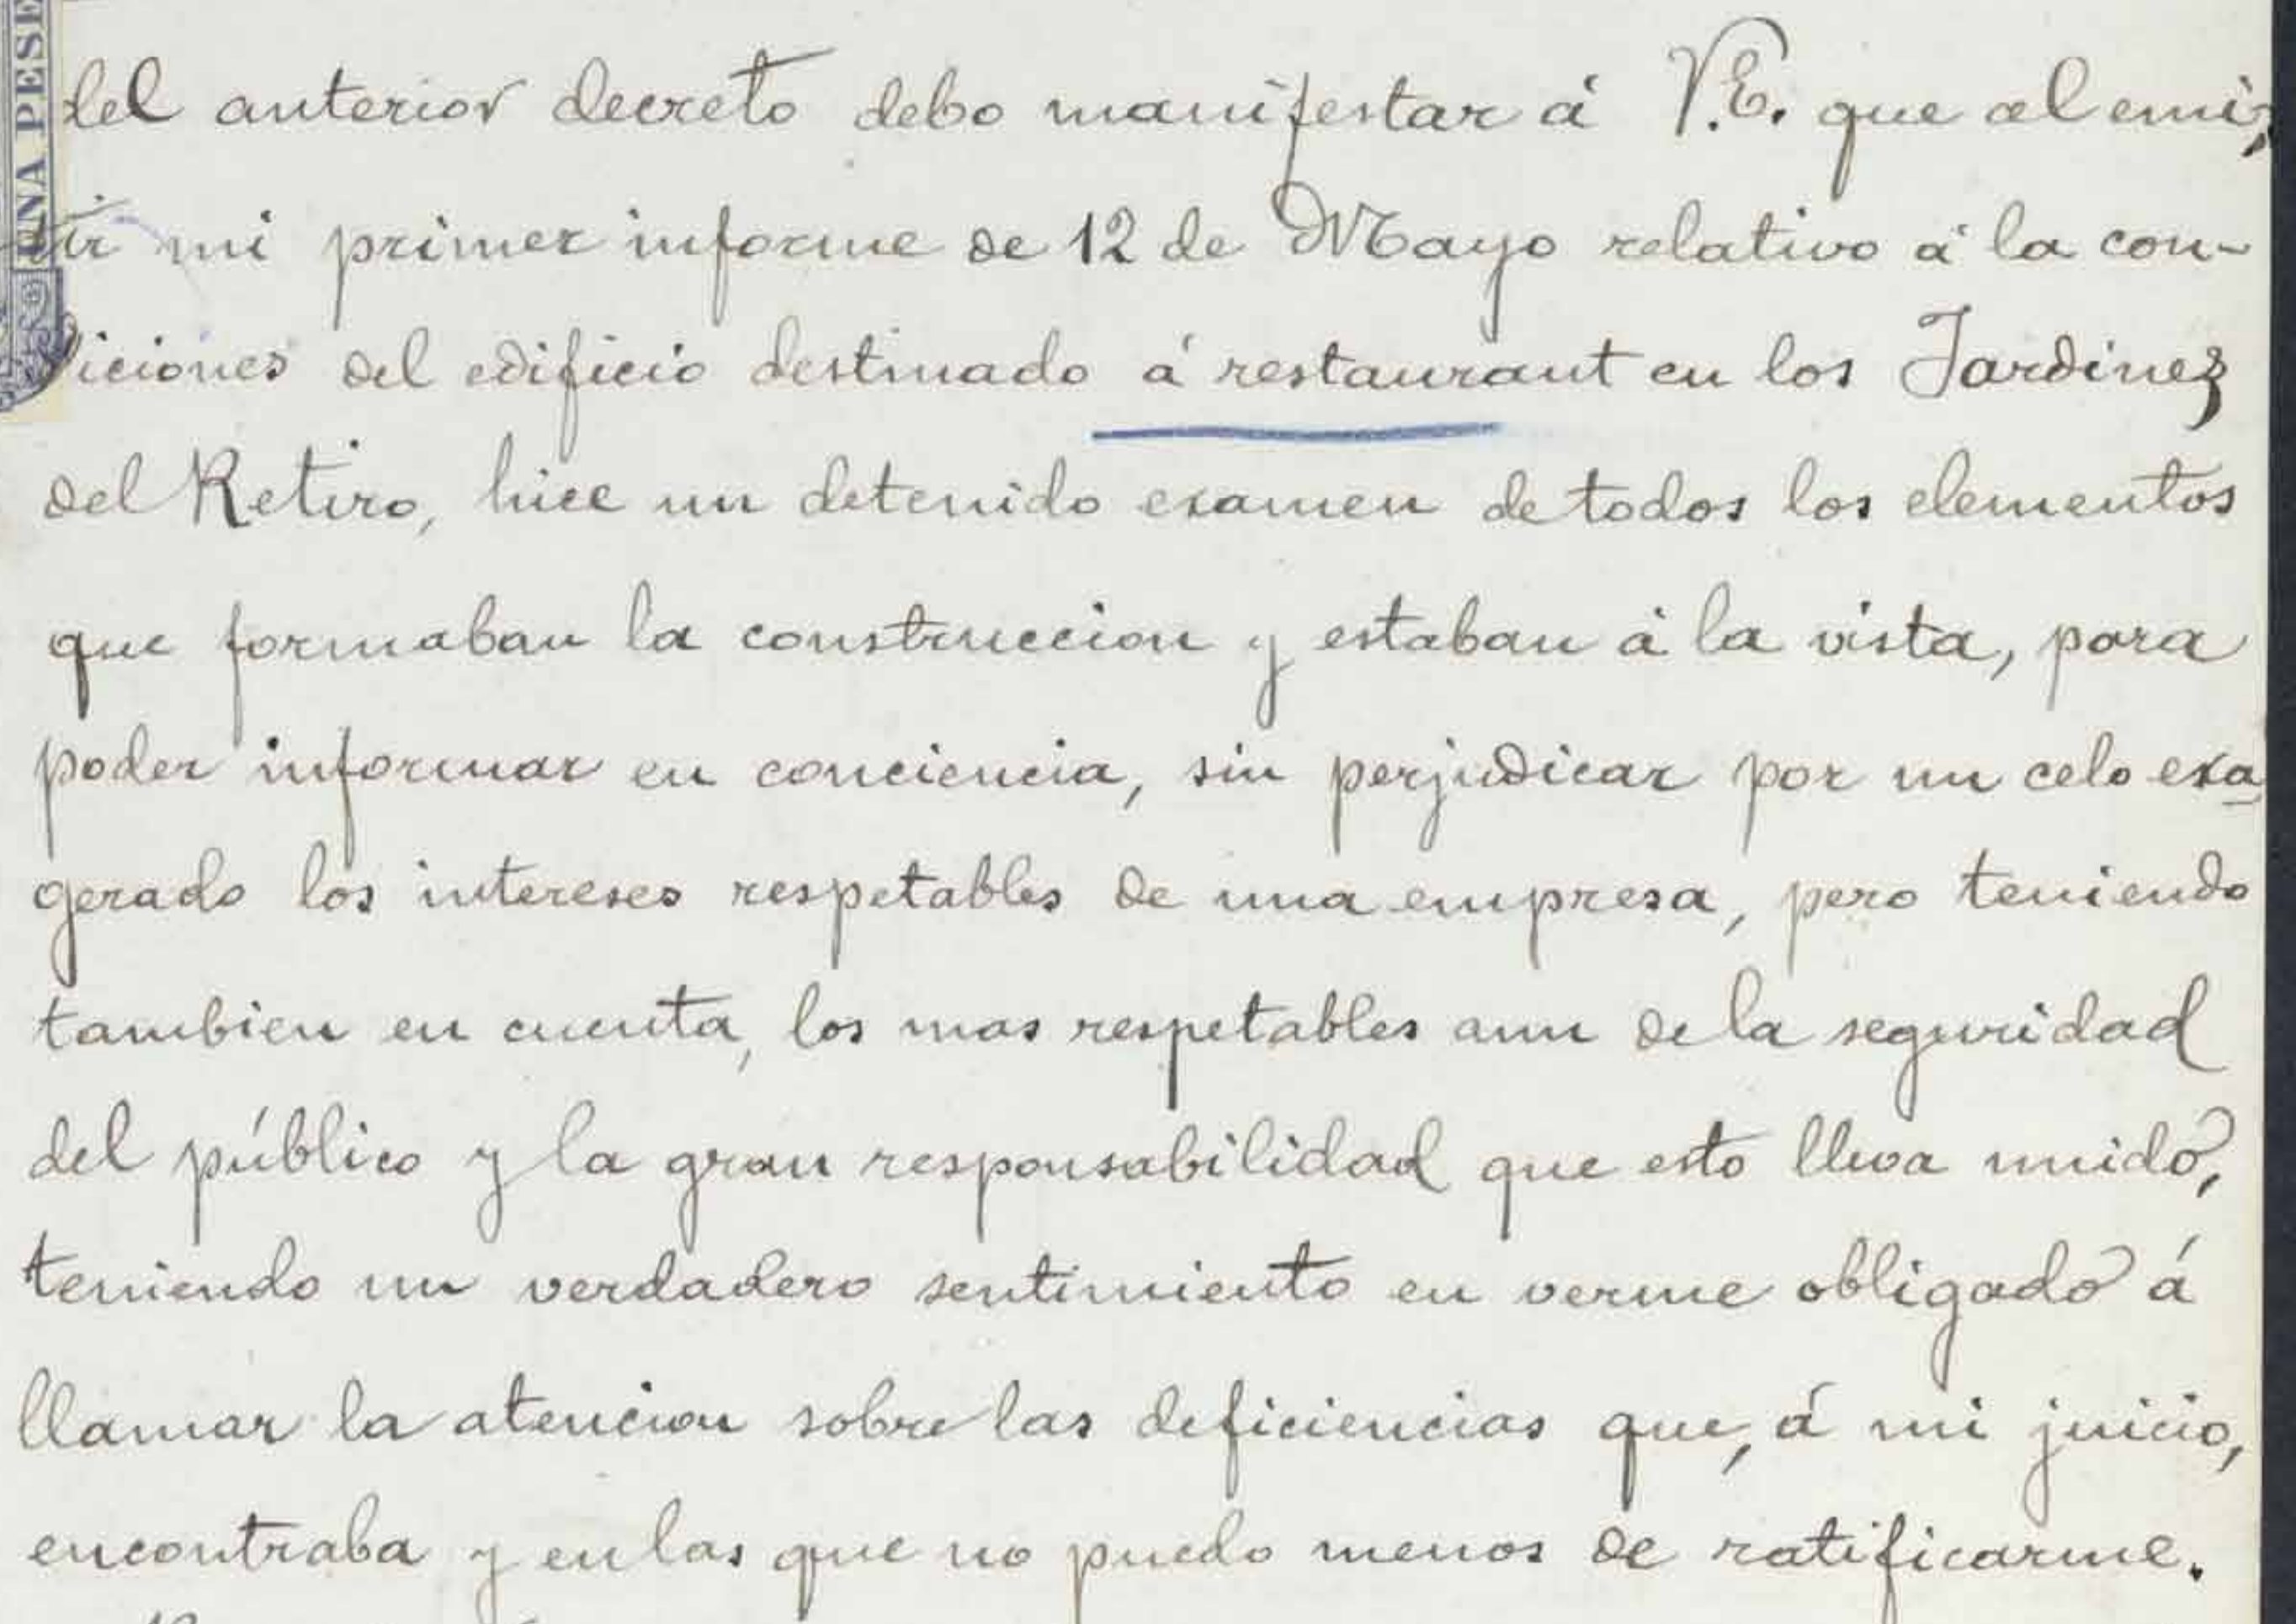 UNA PESE
del anterior decreto debo manifestar á V.E. que al emi-
tir mi primer informe de 12 de Mayo relativo á la con-
diciones del edificio destinado á restaurant en los Jardines
del Retiro, hice un detenido examen de todos los elementos
que formaban la construccion y estaban á la vista, para
poder informar en conciencia, sin perjudicar por un celo exa-
gerado los intereses respetables de una empresa, pero teniendo
tambien en cuenta, los mas respetables aun de la seguridad
del público y la gran responsabilidad que esto lleva unido,
teniendo un verdadero sentimiento en verme obligado á
llamar la atencion sobre las deficiencias que, á mi juicio,
encontraba y en las que no puedo menos de ratificarme.